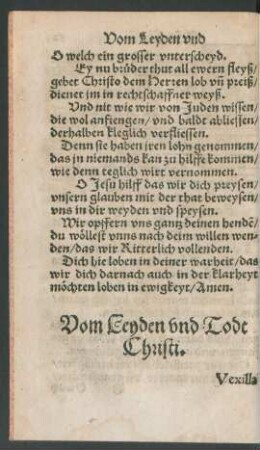 Vom Leyden vnd
O welch ein grosser vnterscheyd.
Ey nu brüder thut all ewern fleyß/
gebet Christo dem Herren lob vñ preiß/
dienet im in rechtschaffner weyß.
Vnd nit wie wir von Juden wissen/
die wol anfiengen/ vnd baldt abliessen/
derhalben kleglich verfliessen.
Denn sie haben iren lohn genommen/
das in niemands kan zu hilffe kommen/
wie denn teglich wirt vernommen.
O Jesu hilff das wir dich preysen/
vnsern glauben mit der that beweysen/
vns in dir weyden vnd speysen.
Wir opffern vns gantz deinen hendē/
du wöllest vnns nach deim willen wen-
den/das wir Ritterlich vollenden.
Dich hie loben in deiner warheit/das
wir dich darnach auch in der klarheyt
möchten loben in ewigkeyt/Amen.
Vom Leyden vnd Todt
Christi.
Vexilla